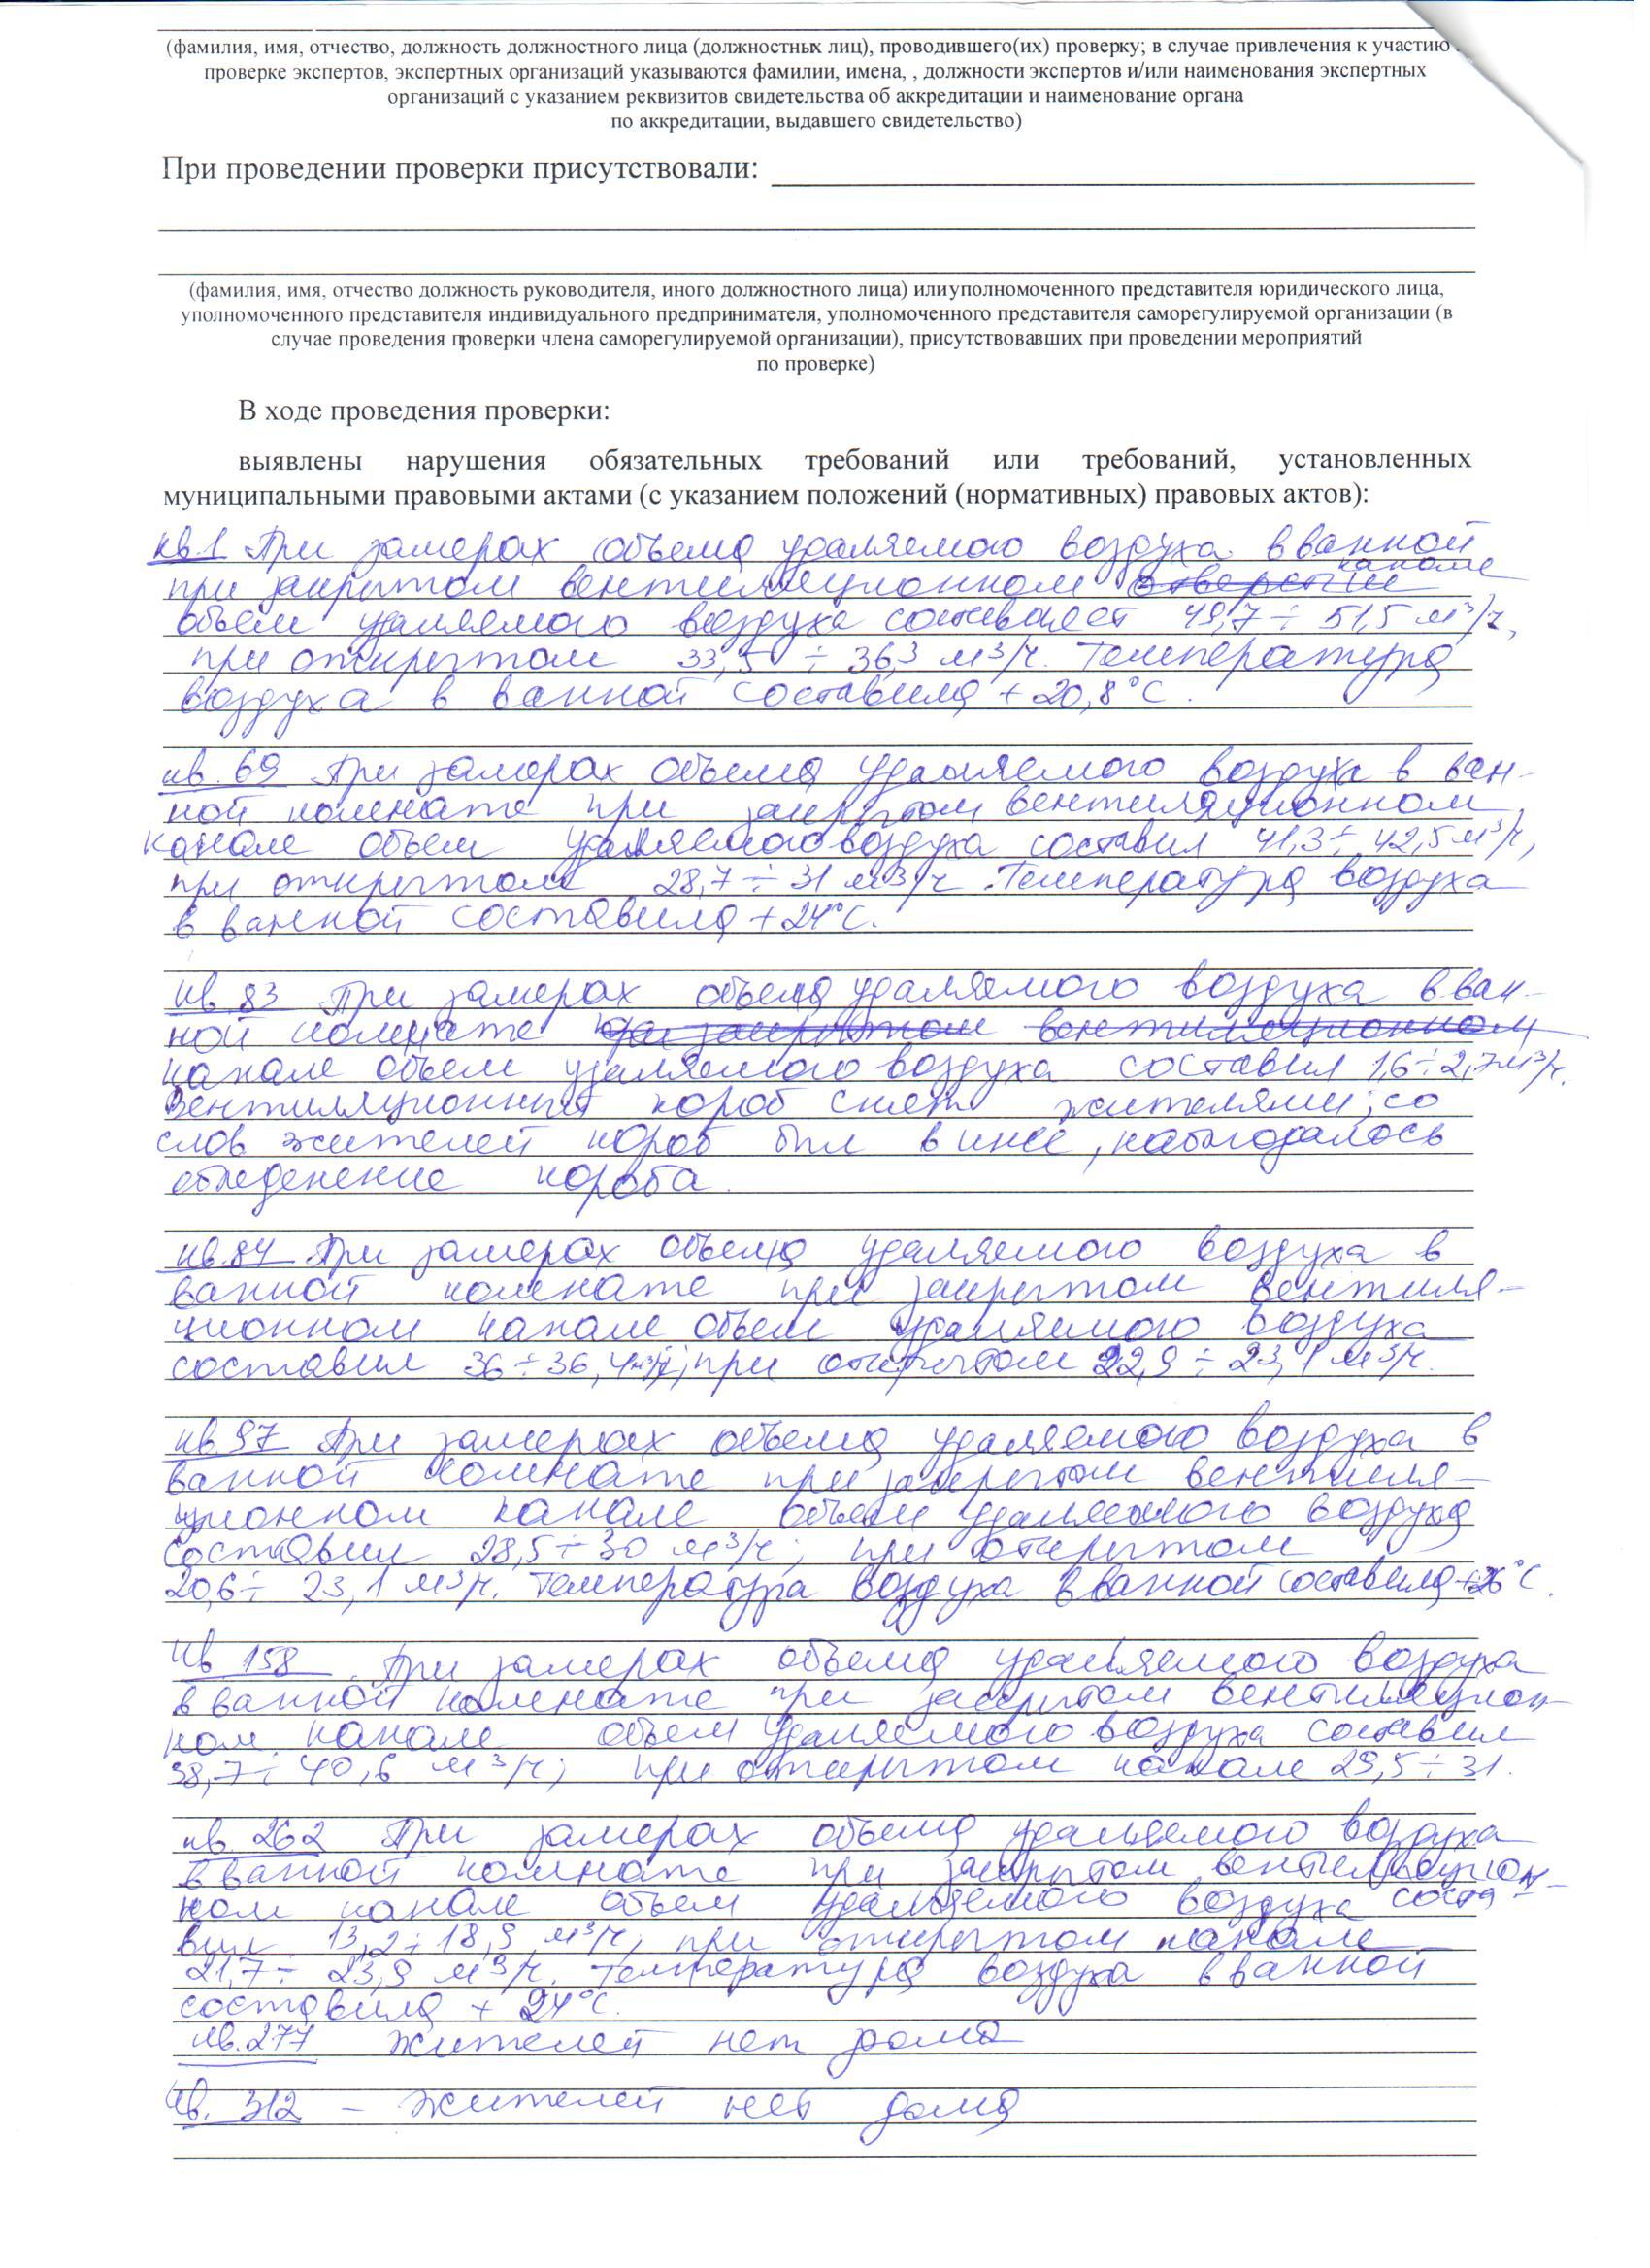 (фамилия, имя, отчество, должность должностного лица (должностных лиц), проводившего(их) проверку; в случае привлечения к участию
проверке экспертов, экспертных организаций указываются фамилии, имена, , должности экспертов и/или наименования экспертных
организаций с указанием реквизитов свидетельства об аккредитации и наименование органа
по аккредитации, выдавшего свидетельство)
При проведении проверки присутствовали:
(фамилия, имя, отчество должность руководителя, иного должностного лица) илиуполномоченного представителя юридического лица,
уполномоченного представителя индивидуального предпринимателя, уполномоченного представителя саморегулируемой организации (в
случае проведения проверки члена саморегулируемой организации), присутствовавших при проведении мероприятий
по проверке)
В ходе проведения проверки:
выявлены нарушения обязательных требований или требований, установленных
муниципальными правовыми актами (с указанием положений (нормативных) правовых актов):
кв.1 При замерах объема удаляемого воздуха в ванной
при закрытом вентиляционном отверстии канале
объем удаляемого воздуха составляет 49,7 ÷ 51,5 м³/ч,
при открытом 33,5 ÷ 36,3 м³/ч. Температура
воздуха в ванной составила +20,8°С.
кв. 69 При замерах объема удаляемого воздуха в ван-
ной комнате при закрытом вентиляционном
канале объем удаляемого воздуха составил 41,3 ÷ 42,5 м³/ч,
при открытом 28,7 ÷ 31 м³/ч. Температура воздуха
в ванной составила +24°С.
кв. 83 При замерах объема удаляемого воздуха в ван-
ной комнате при закрытом вентиляционном
канале объем удаляемого воздуха составил 1,6 ÷ 2,7 м³/ч.
Вентиляционный короб снят жителями; со
слов жителей короб был в инее, наблюдалось
обледенение короба.
кв.84 При замерах объема удаляемого воздуха в
ванной комнате при закрытом вентиля-
ционном канале объем удаляемого воздуха
составил 36 ÷ 36,4 м³/ч; при открытом 22,9 ÷ 23,1 м³/ч.
кв.97 При замерах объема удаляемого воздуха в
ванной комнате при закрытом вентиля-
ционном канале объем удаляемого воздуха
составил 28,5 ÷ 30 м³/ч; при открытом
20,6 ÷ 23,1 м³/ч. Температура воздуха в ванной составила +26°С.
кв 158 При замерах объема удаляемого воздуха
в ванной комнате при закрытом вентиляцион-
ном канале объем удаляемого воздуха составил
38,7 ÷ 40,6 м³/ч; при открытом канале 29,5 ÷ 31.
кв. 262 При замерах объема удаляемого воздуха
в ванной комнате при закрытом вентиляцион-
ном канале объем удаляемого воздуха соста-
вил 13,2 ÷ 18,9 м³/ч; при открытом канале
21,7 ÷ 23,9 м³/ч. Температура воздуха в ванной
составила + 24°С.
кв.277 жителей нет дома
кв. 312 – жителей нет дома